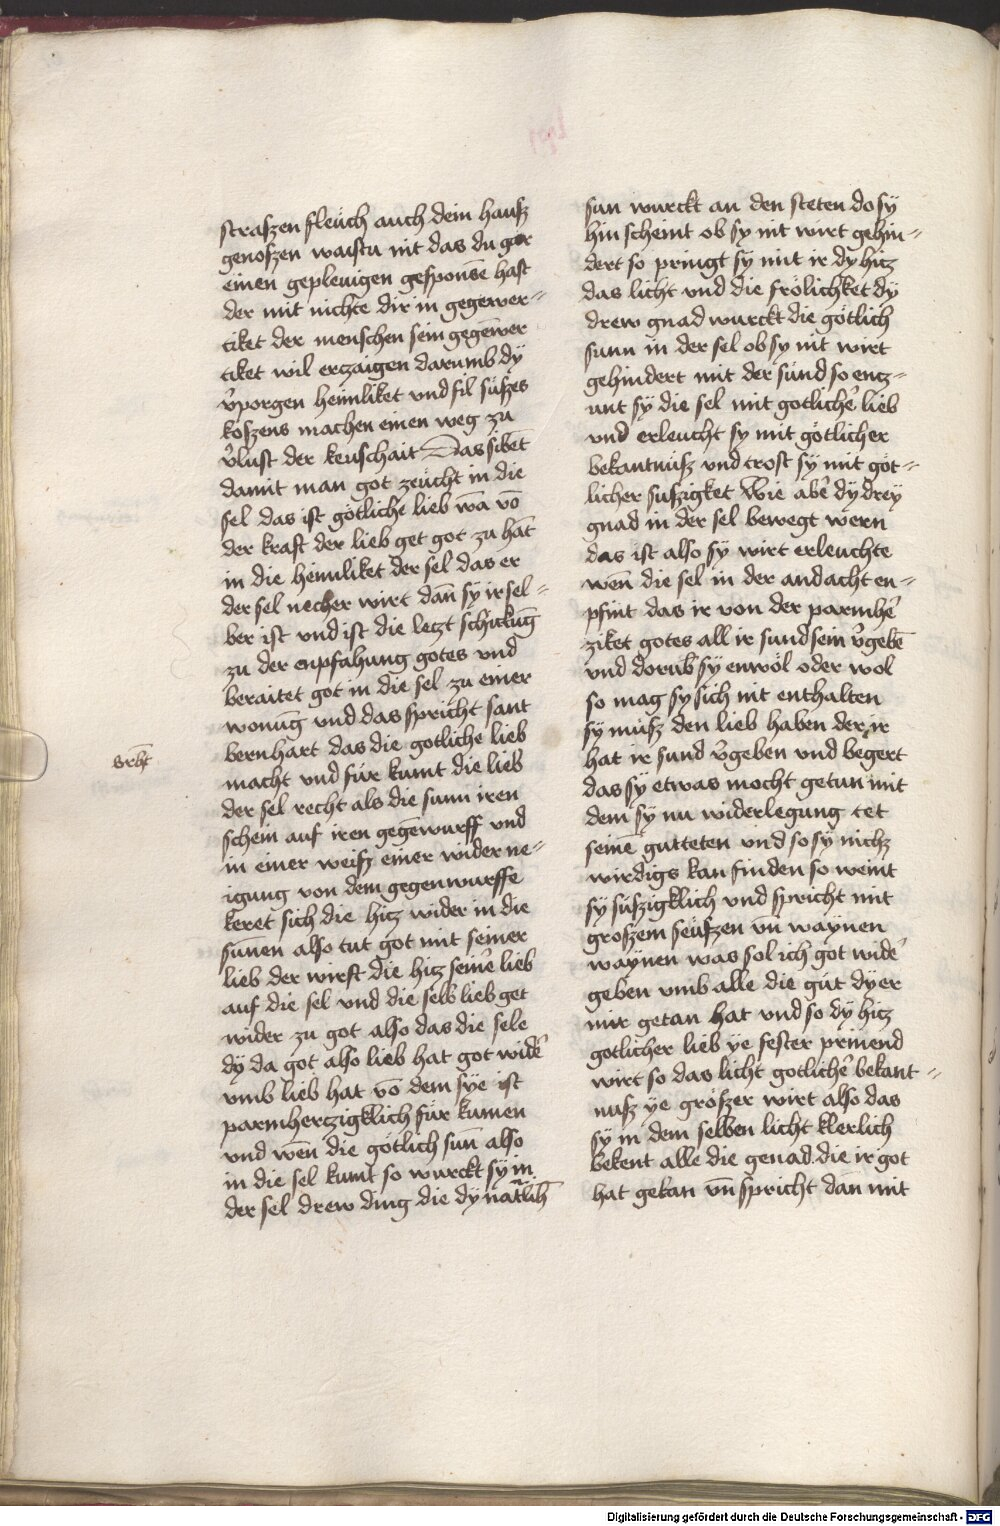 straszen fleuch auch dein hausz
genoszen waistu nit das du gar
einen gepleuigen gesponse hast
der mit nichte dir in gegewer-
tiket der menschen sein gegewer
tiket wil erczaigen darumb dy
v̄porgen heimliket und fil süszes
koszens machen einen weg zu
v̄lust der keuschait Das sibēt
damit man got zeücht in die
sel das ist götliche lieb wā vō
der kraft der lieb get got zu hāt
in die heimliket der sel das er
der sel necher wirt dañ sy ir sel-
ber ist und ist die letzt schickūg
zu der enpfahung gotes und
beraitet got in die sel zu einer
wonūg und das spricht sant
bernhart das die gotliche lieb
macht und für kumt die lieb
der sel recht als die sunn iren
schein auf iren gegēwurff und
in einer weisz einer wider ne-
igung von dem gegenwurffe
keret sich die hicz wider in die
sunen also tut got mit seiner
lieb der wirft die hicz seinē lieb
auf die sel und die selb lieb get
wider zu got also das die sele
dy da got also lieb hat got widē
umb lieb hat vō dem sye ist
parmherczigklich für kumen
und wen̄ die götlich sun̄ also
in die sel kumt so wurckt sy in
der sel drew ding die dy natlich
sun wurckt an den steten do sy
hin scheint ob sy nit wirt gehin-
dert so pringt sy mit ir dy hicz
das licht und die frölichket dy
drew gnad wurckt die götlich
sunn in der sel ob sy nit wirt
gehindert mit der sünd so encz-
unt sy die sel mit gotlichē lieb
und erleucht sy mit götlicher
bekantnüsz und trost sy mit göt-
licher suszigket Wie abē dy drey
gnad in der sel bewegt wern
das ist also sy wirt erleuchte
wen̄ die sel in der andacht en-
pfint das ir von der parmhē
ziket gotes all ir sund sein v̄gebē
und dorūb sy enwöl oder wol
so mag sy sich nit enthalten
sy müsz den lieb haben der ir
hat ir sund v̄geben und begert
das sy etwas mocht getun mit
dem sy nu widerlegung tet
seinē gutteten und so sy nichz
wirdigs kan finden so weint
sy süszigklich und spricht mit
groszem seüfzen un̄ waynen
waynen was sol ich got widē
geben umb alle die güt dy er
mir getan hat und so dy hicz
gotlicher lieb ye fester prinend
wirt so das licht gotlichē bekant-
nusz ye gröszer wirt also das
sy in dem selben licht klerlich
bekent alle die genad die ir got
hat getan un̄ spricht dan̄ mit